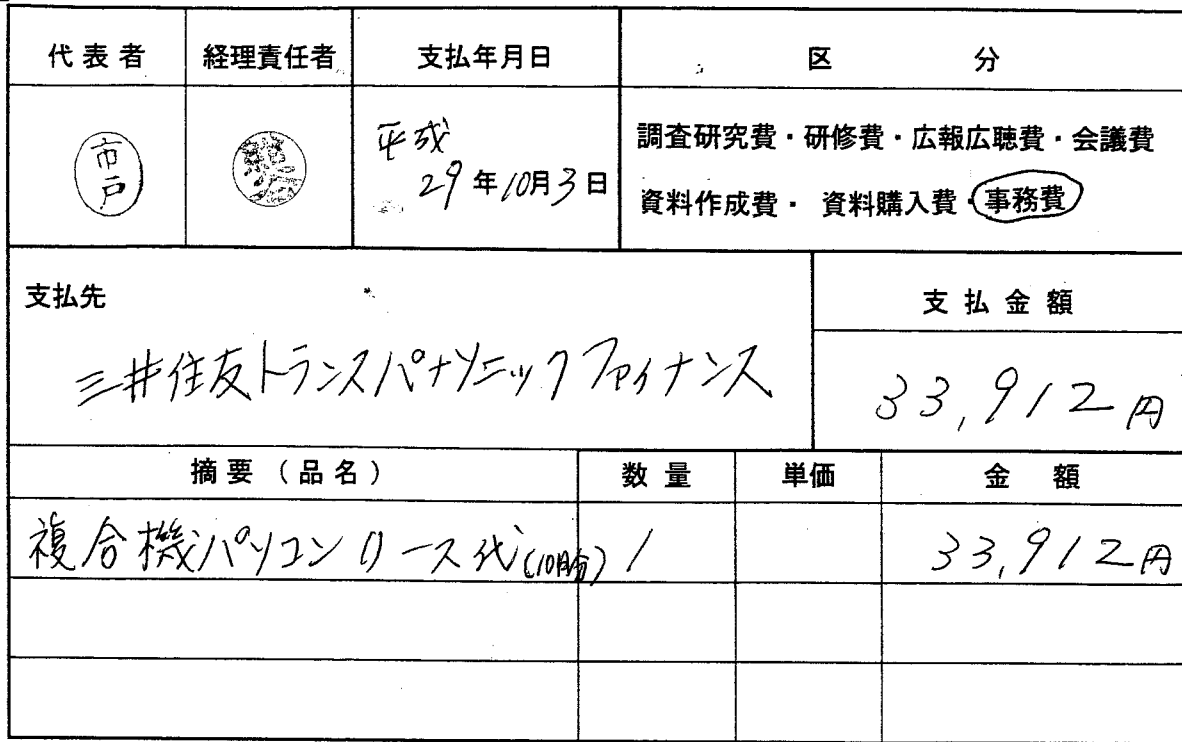 代表者 経理責任者 支払年月日 区 分
市戸
平成
29年10月3日
調査研究費・研修費・広報広聴費・会議費
資料作成費・ 資料購入費・事務費
支払先
支払金額
三井住友トランスパナソニックファイナンス
33,912円
摘要(品名) 数量 単価 金 額
複合機パソコンリース代(10月分) 1 33,912円